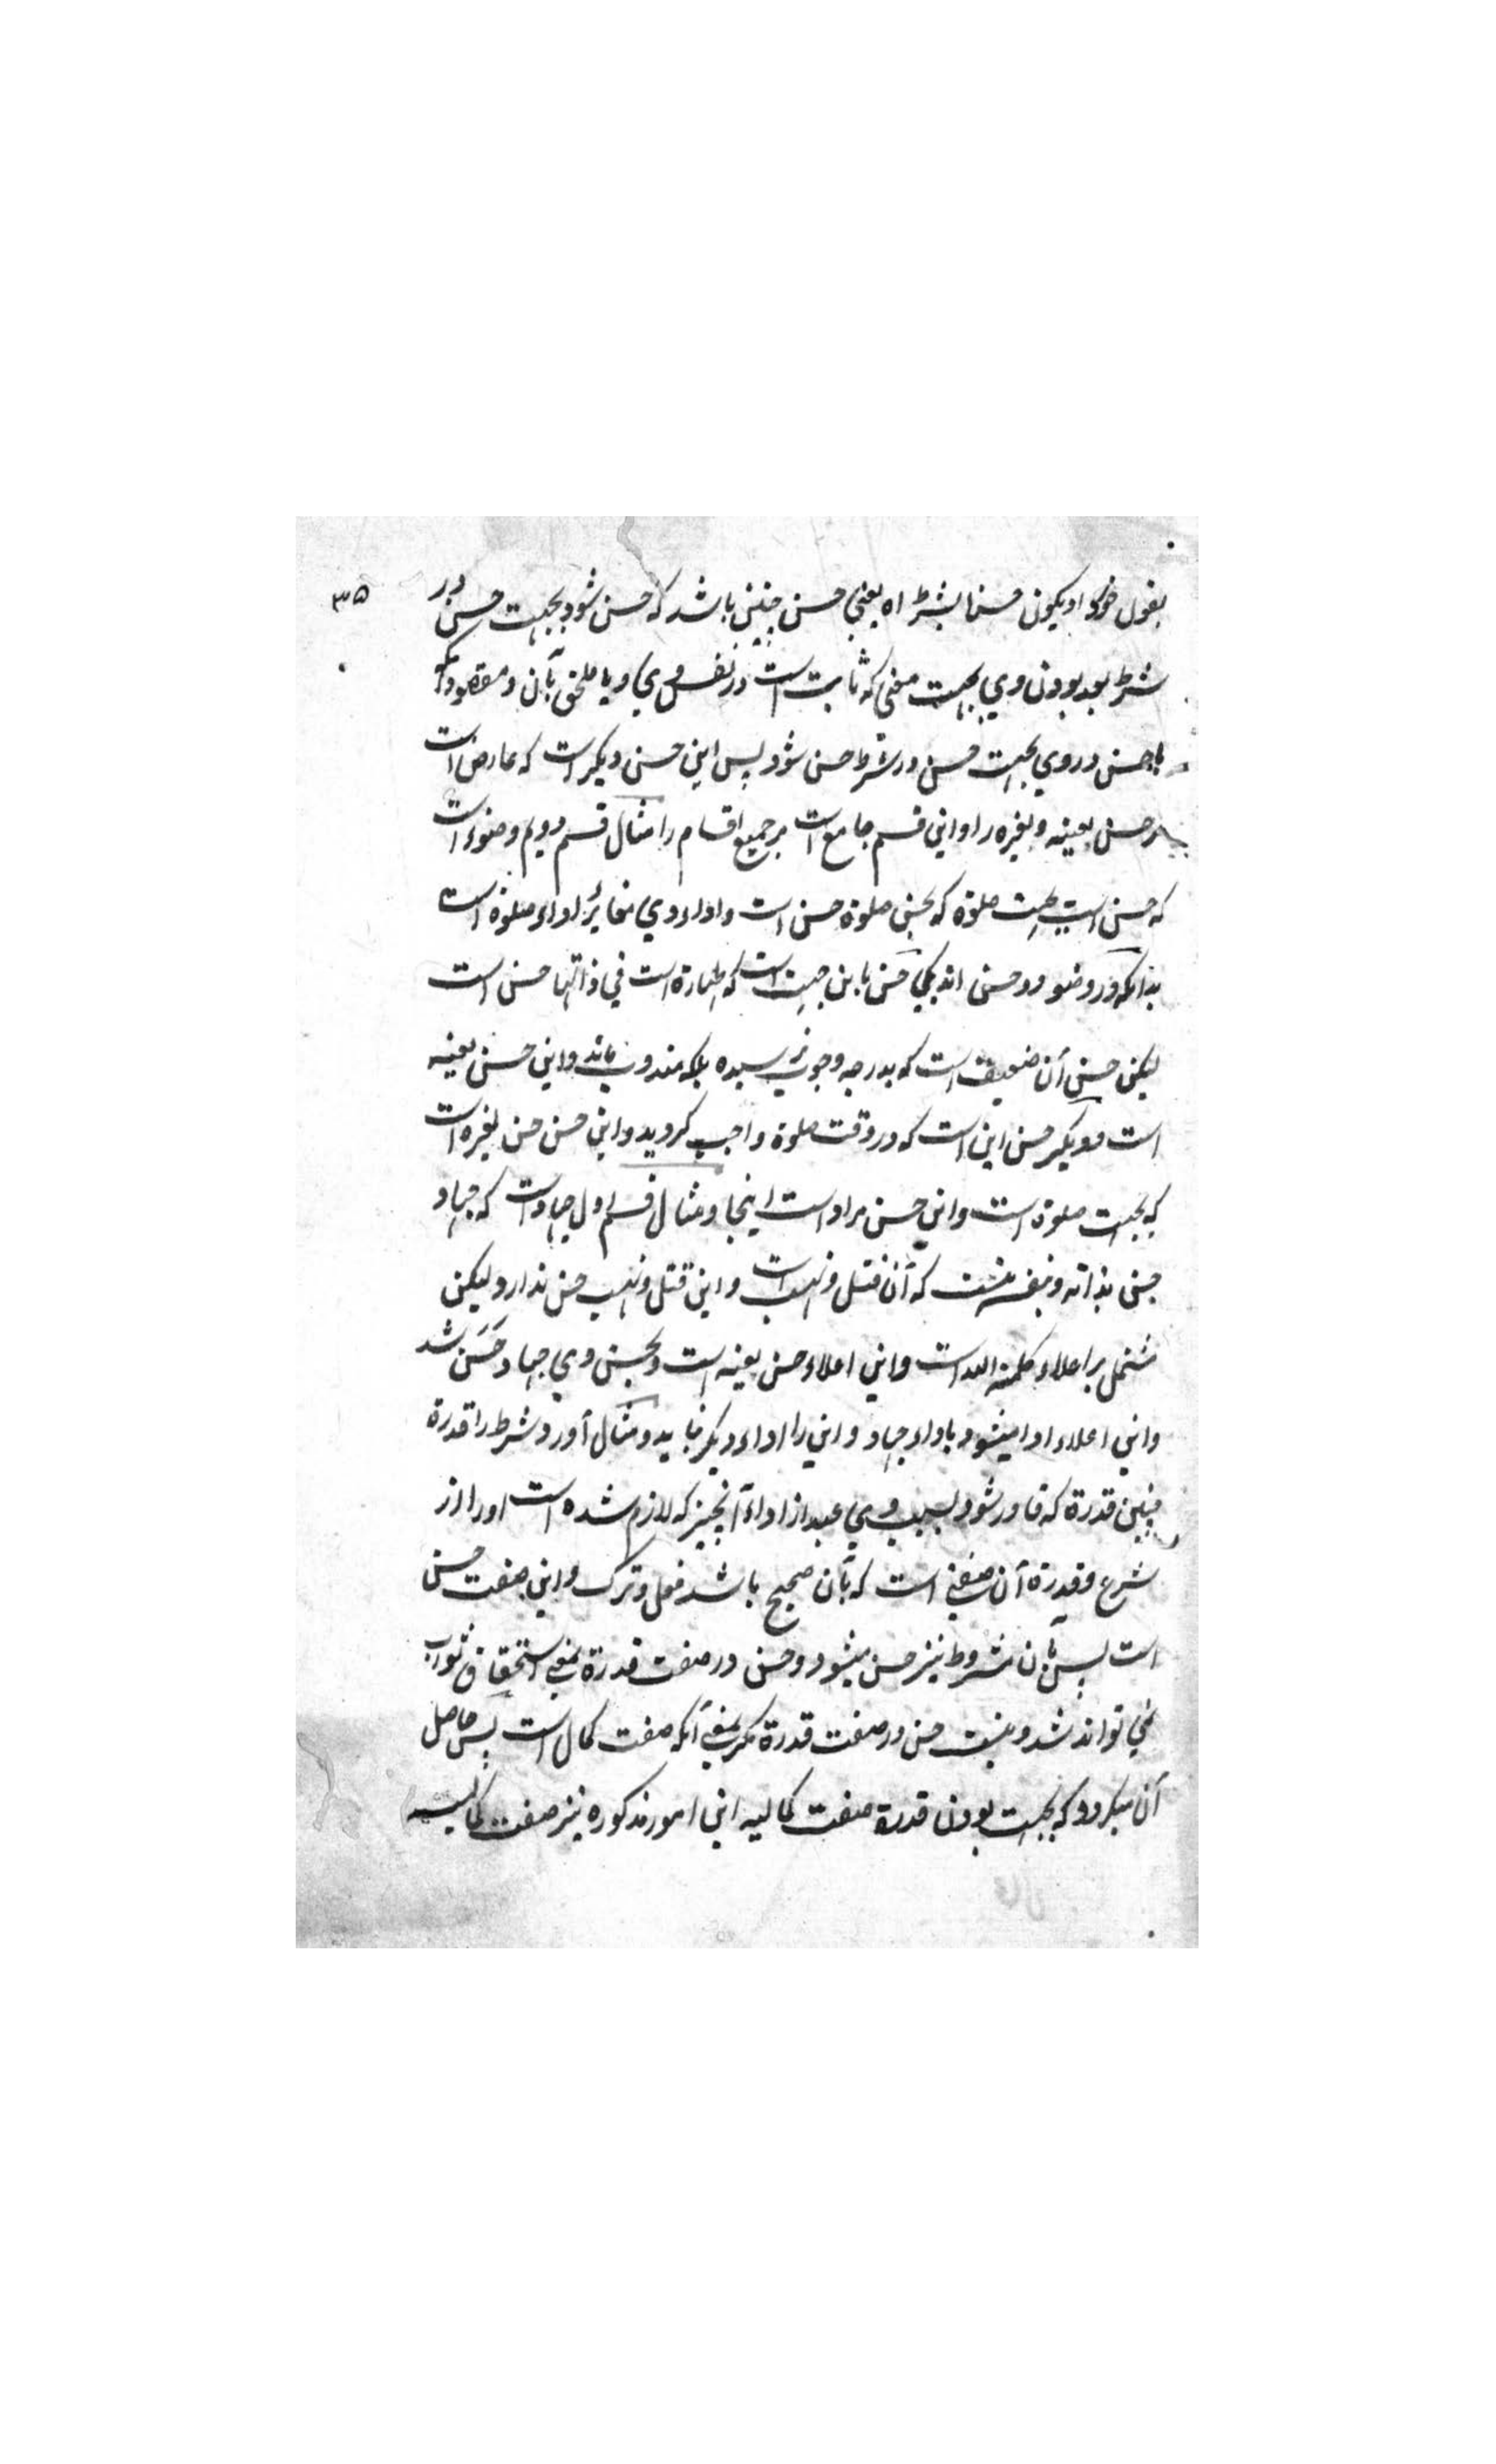 ۳۵
بقول خود او یکون حسنا بشرط اه یعنی حسن چنین باشد که حسن شود بجهت حسن در
شرط بعد بودن وی بجهت معنی که ثابت است در نفس وی و یا ملحق بآن و مقصود
حسن در وی بجهت حسن در شرط حسن شود پس این حسن دیگر است که عارض است
مر حسن بعینه و بغیره را و این قسم جامع است مر جمیع اقسام را مثال قسم دویم وضوء است
که حسن است بجهت صلوة که بحسن صلوة حسن است و اداء وی مغایر اداء صلوة است
بدانکه در وضو دو حسن اند یکی حسن باین جهت است که طهارة است فی ذاتها حسن است
لیکن حسن آن ضعیف است که بدرجه وجوب نرسیده بلکه مندوب ماند و این حسن بعینه
است دویگر حسن این است که در وقت صلوة واجب کردید و این حسن حسن بغیره است
که بجهت صلوة است و این حسن مراد است اینجا و مثال قسم اول جهاد است که جهاد
حسن بذاته و بنفسه نیست که آن قتل و نهب است و این قتل و نهب حسن ندارد لیکن
مشتمل بر اعلاء کلمة الله است و این اعلاء حسن بعینه است و بحسن وی جهاد حسن شد
و این اعلاء ادا میشود باداء جهاد و این را اداء دیگر نباید و مثال آورد شرط را قدرة
قدرة که قادر شود بسبب وی عبد از اداء آنچیز که لازم شده است او را از
شرع و قدرة آن صفتی است که بآن صحیح باشد فعل و ترک و این صفت حسن
است پس بآن مشروط نیز حسن میشود و حسن در صفت قدرة بمعنی استحقاق ثواب
نمی تواند شد و نیست حسن در صفت قدرة مگر بمعنی آنکه صفت کمال است پس حاصل
آن میکردد که بجهت بودن قدرة صفت کمالیه این امور مذکوره نیز صفت کمالیه